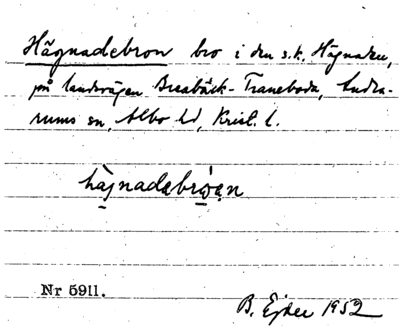 Hägnadebron bro i den s.k. Hägnaden,
på landsvägen Breabäck-Traneboda, Andra-
rums sn, Albo hd, Krist. l.
hägnadebrọ́ẹn
Nr 5911.
B. Ejder 1952